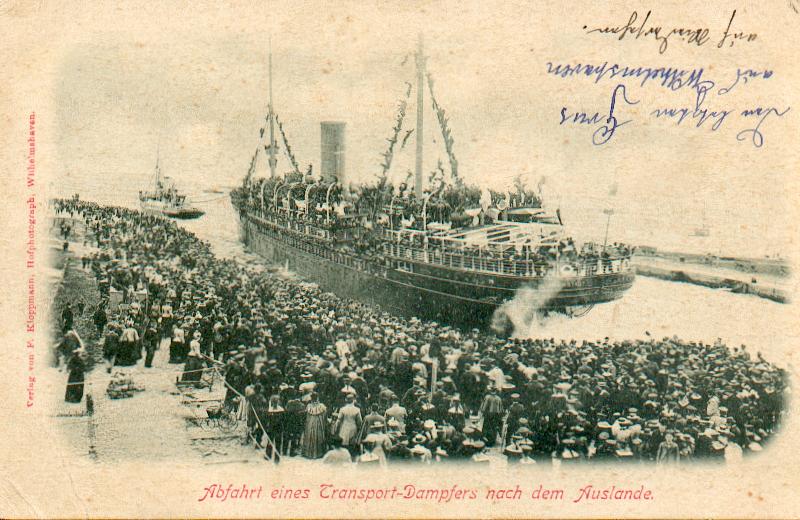 Den letzten Gruss
aus Wilhelmshaven
auf Wiedersehen.
Verlag von F. Kloppmann, Hofphotograph, Wilhelmshaven.
Abfahrt eines Transport-Dampfers nach dem Auslande.